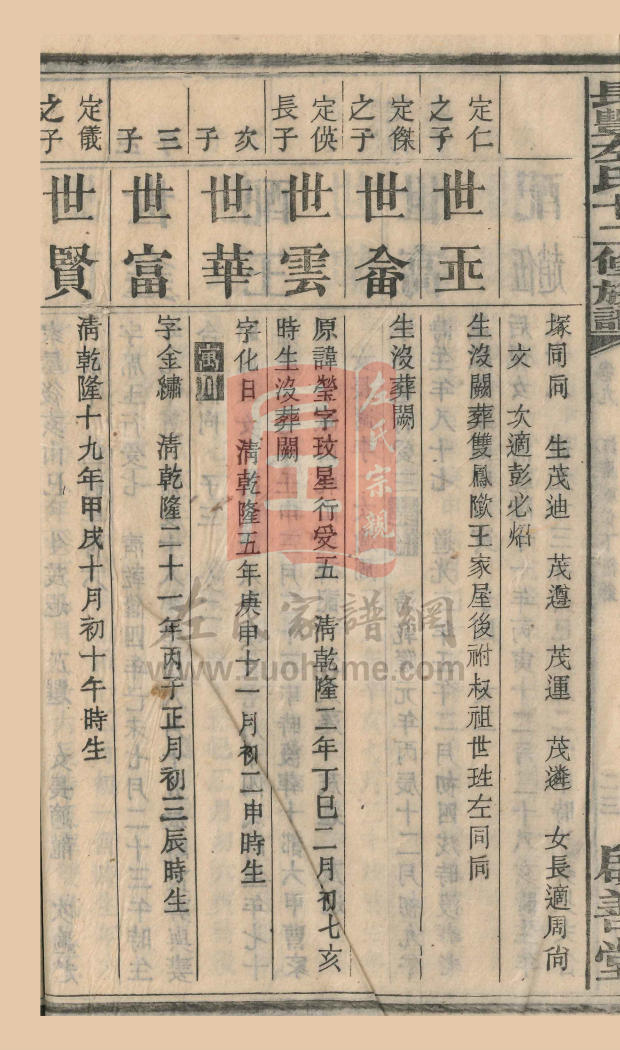 長豐左氏十二修族譜
啟善堂
塚同向 生茂迪 茂遵 茂運 茂遴 女長適周尚
文 次適彭必炤
定仁之子
世玊
生沒闕葬雙鳳歐王家屋後祔叔祖世珄左同向
定傑之子
世畬
生沒葬闕
定偀長子
世雲
原諱瑩字玟星行受五 淸乾隆二年丁巳二月初七亥
時生沒葬闕
次子
世華
字化日 淸乾隆五年庚申十一月初二申時生
三子
世富
字金繡 淸乾隆二十一年丙子正月初三辰時生
定儀之子
世賢
淸乾隆十九年甲戌十月初十午時生
左氏宗親
左氏家譜網
www.zuohome.com